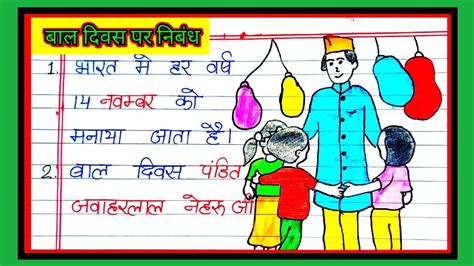 बाल दिवस पर निबंध
1. भारत मे हर वर्ष
14 नवम्बर को
मनाया जाता है।
2. बाल दिवस पंडित
जवाहरलाल नेहरू जी